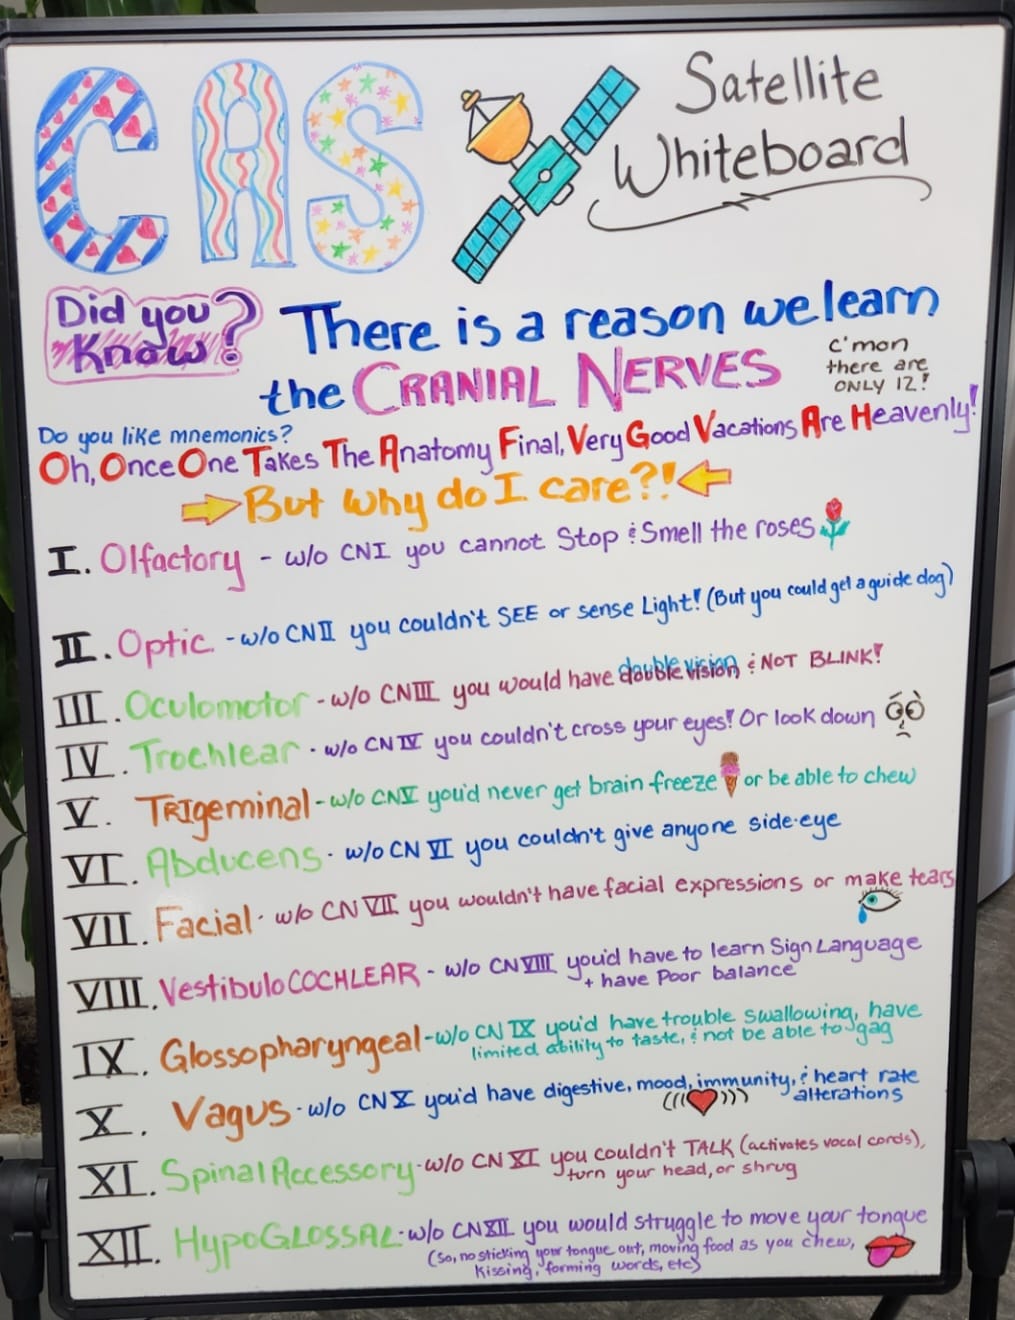 CAS
Satellite
Whiteboard
Did you
Know?!
There is a reason we learn
the CRANIAL NERVES
c'mon
there are
ONLY 12!
Do you like mnemonics?
Oh, Once One Takes The Anatomy Final, Very Good Vacations Are Heavenly!
But why do I care?!
I. Olfactory - w/o CNI you cannot Stop & Smell the roses
II. Optic - w/o CNII you couldn't SEE or sense Light! (But you could get a guide dog)
III. Oculomotor - w/o CNIII you would have double vision & NOT BLINK!
IV. Trochlear - w/o CN IV you couldn't cross your eyes! Or look down
V. TRIgeminal - w/o CNV you'd never get brain freeze or be able to chew
VI. Abducens - w/o CN VI you couldn't give anyone side-eye
VII. Facial - w/o CN VII you wouldn't have facial expressions or make tears
VIII. VestibuloCOCHLEAR - w/o CNVIII you'd have to learn Sign Language
+ have Poor balance
IX. Glossopharyngeal - w/o CN IX you'd have trouble swallowing, have
limited ability to taste, & not be able to gag
X. Vagus - w/o CN X you'd have digestive, mood, immunity, & heart rate
alterations
XI. Spinal Accessory - w/o CN XI you couldn't TALK (activates vocal cords),
turn your head, or shrug
XII. HypoGLOSSAL - w/o CNXII you would struggle to move your tongue
(So, no sticking your tongue out, moving food as you chew,
kissing, forming words, etc)